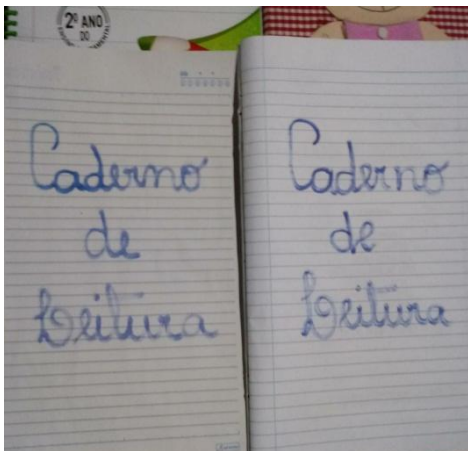 2º ANO
DO
Caderno
de
Leitura
Caderno
de
Leitura